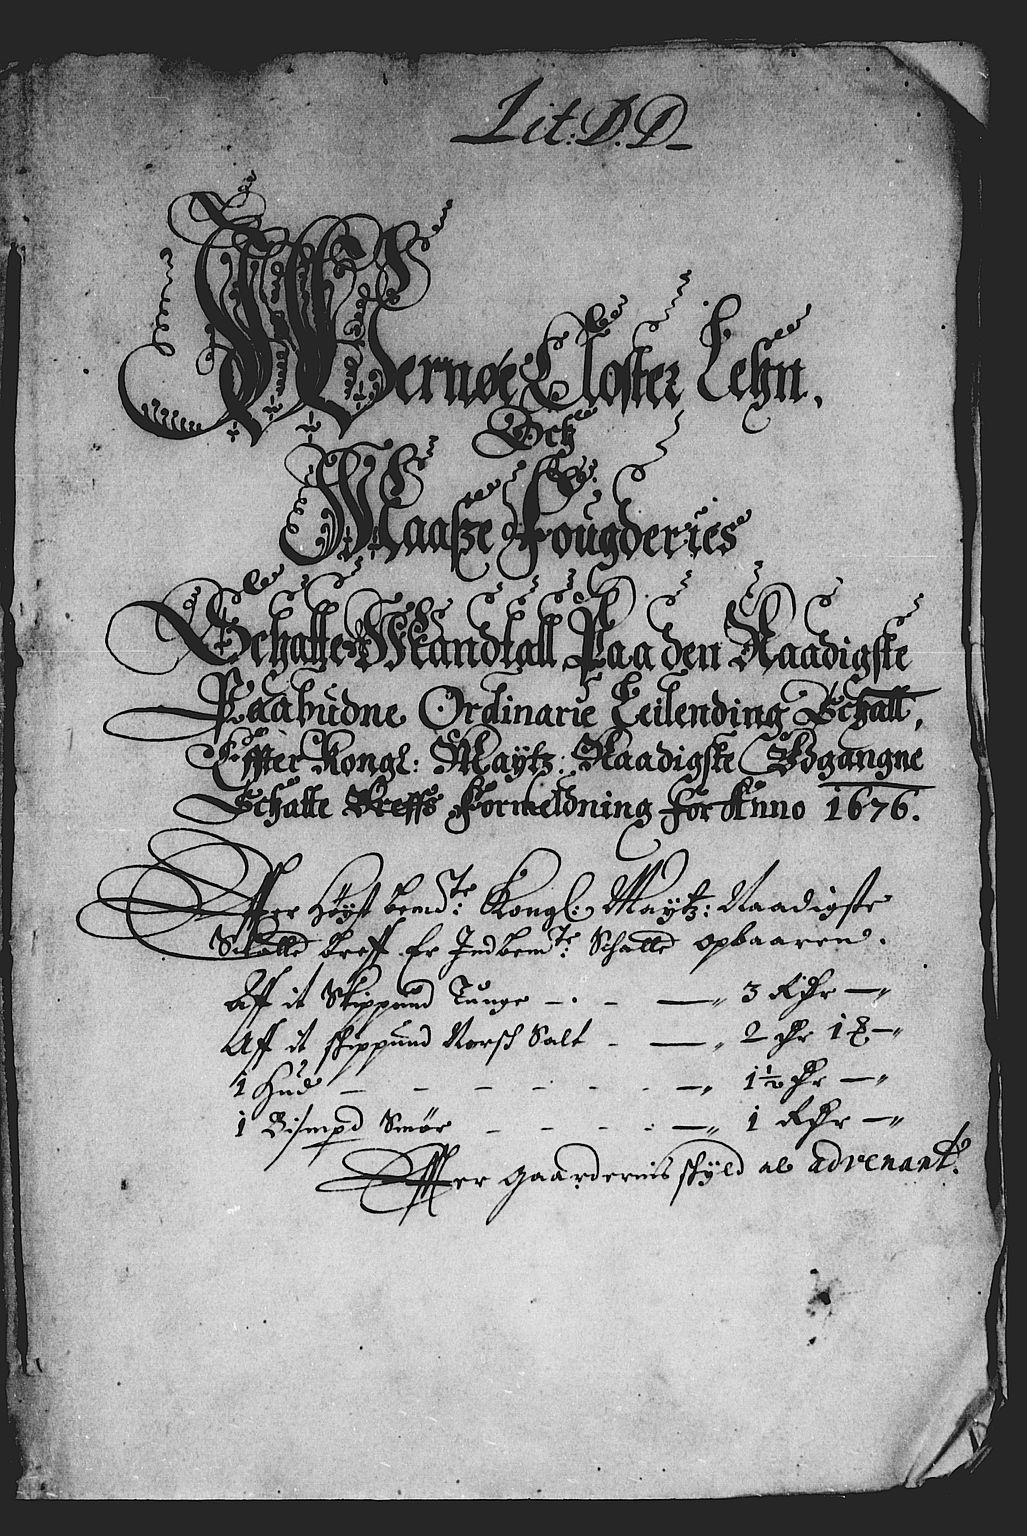 Lit: D. D
Wernøe Closter Lehn,
Och
Maasze Fougderies
Schatte Mandtall Paa den Naadigste
Paabudne Ordinarie Leilending Schatt,
Effter Kongl: Maÿtz: Naadigste Udgangne
Schatte Breffs Formeldning for Anno 1676.
Effter Høÿst bemte: Kongl: Maÿtz: Naadigste
Schatte breff Er Indbemte: Schatte opbaaren.
Aff it Skippund Tunge - . - — 3 Rdr —
Aff it skippund Norsch Salt - — 2 dr 1 —
1 Hud - - - - - - — 1½ dr —
1 Bismpd Smør - - - - : — 1 Rdr —
Effter gaardernis skÿld al advenant.